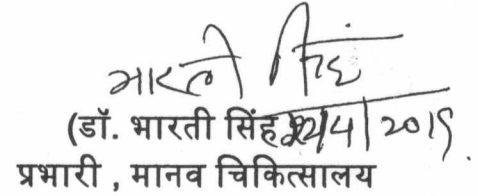 भारती सिंह
(डॉ. भारती सिंह) 22/4/2019
प्रभारी , मानव चिकित्सालय